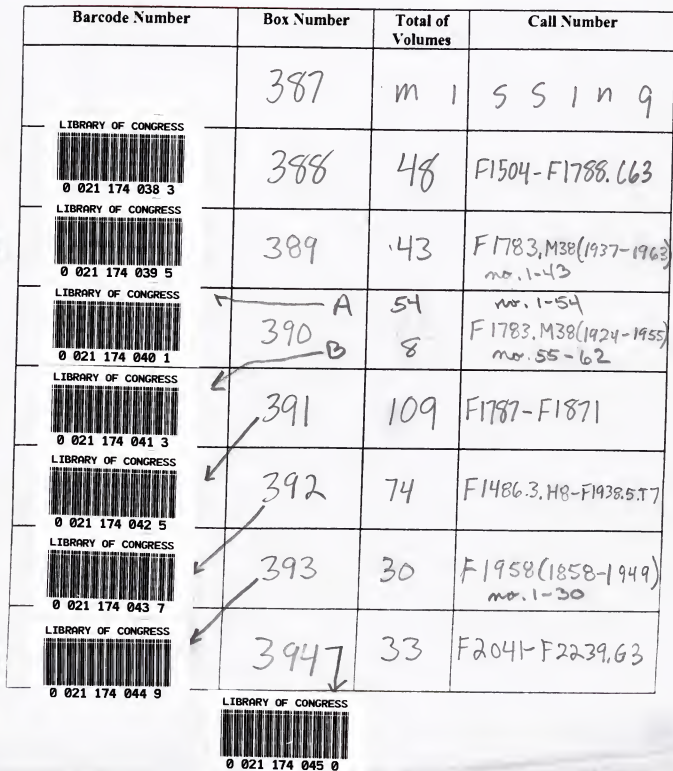 Barcode Number Box Number Total of Volumes Call Number
387 m i s s i n g
LIBRARY OF CONGRESS
0 021 174 038 3
388 48 F1504-F1788.C63
LIBRARY OF CONGRESS
0 021 174 039 5
389 43 F1783.M38(1937-1963)
no. 1-43
LIBRARY OF CONGRESS
0 021 174 040 1
A 54 no. 1-54
390 F1783.M38(1924-1955)
B 8 no. 55-62
LIBRARY OF CONGRESS
0 021 174 041 3
391 109 F1787-F1871
LIBRARY OF CONGRESS
0 021 174 042 5
392 74 F1486.3.H8-F1938.5.T7
LIBRARY OF CONGRESS
0 021 174 043 7
393 30 F1958(1858-1949)
no. 1-30
LIBRARY OF CONGRESS
0 021 174 044 9
394 33 F2041-F2239.G3
LIBRARY OF CONGRESS
0 021 174 045 0